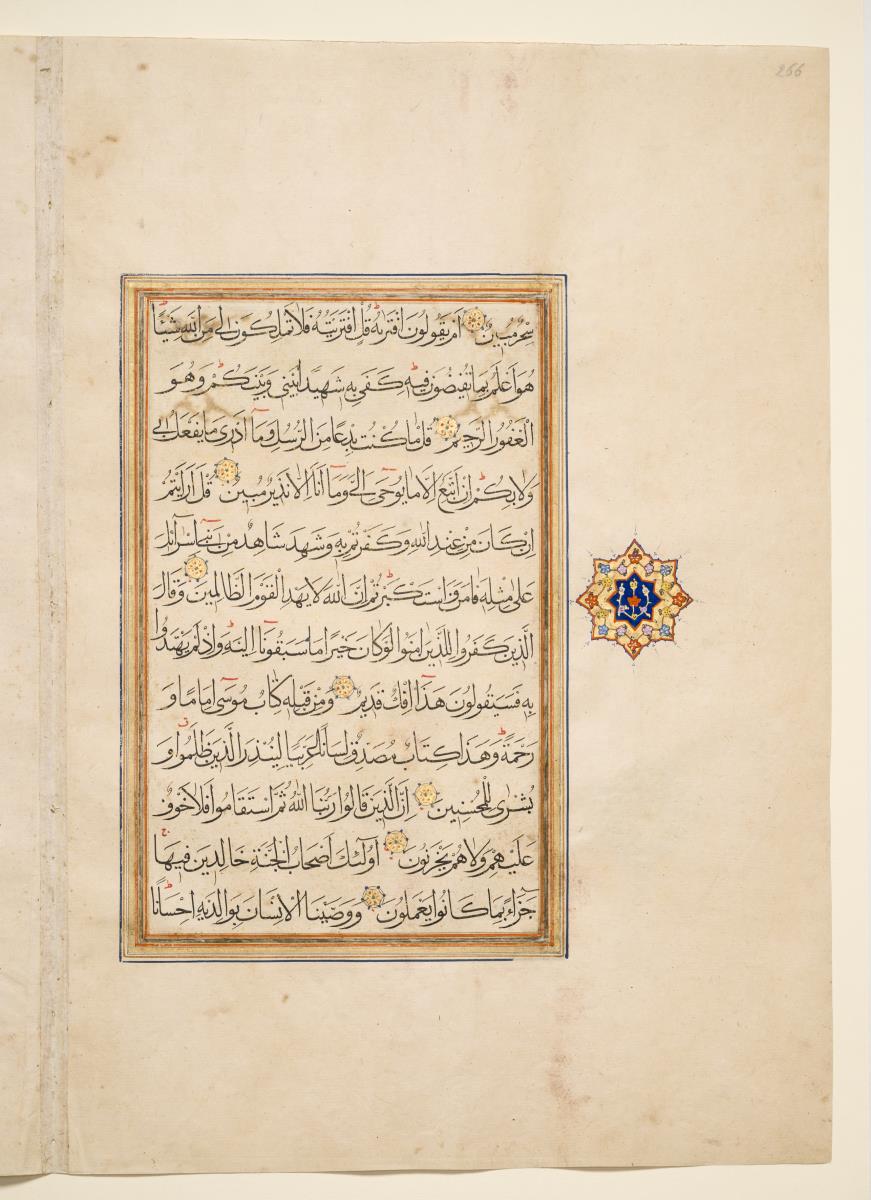 266
سِحْرٌ مُبِينٌ أَمْ يَقُولُونَ افْتَرَيهُ قُلْ إِنِ افْتَرَيْتُهُ فَلَا تَمْلِكُونَ لِي مِنَ اللَّهِ شَيْئًا
هُوَ أَعْلَمُ بِمَا تُفِيضُونَ فِيهِ كَفَى بِهِ شَهِيدًا بَيْنِي وَبَيْنَكُمْ وَهُوَ
الْغَفُورُ الرَّحِيمُ قُلْ مَا كُنْتُ بِدْعًا مِنَ الرُّسُلِ وَمَا أَدْرِي مَا يُفْعَلُ بِي
وَلَا بِكُمْ إِنْ أَتَّبِعُ إِلَّا مَا يُوحَى إِلَيَّ وَمَا أَنَا إِلَّا نَذِيرٌ مُبِينٌ قُلْ أَرَأَيْتُمْ
إِنْ كَانَ مِنْ عِنْدِ اللَّهِ وَكَفَرْتُمْ بِهِ وَشَهِدَ شَاهِدٌ مِنْ بَنِي إِسْرَائِلَ
عَلَى مِثْلِهِ فَآمَنَ وَاسْتَكْبَرْتُمْ إِنَّ اللَّهَ لَا يَهْدِي الْقَوْمَ الظَّالِمِينَ وَقَالَ
الَّذِينَ كَفَرُوا لِلَّذِينَ آمَنُوا لَوْ كَانَ خَيْرًا مَا سَبَقُونَا إِلَيْهِ وَإِذْ لَمْ يَهْتَدُوا
بِهِ فَسَيَقُولُونَ هَذَا إِفْكٌ قَدِيمٌ وَمِنْ قَبْلِهِ كِتَابُ مُوسَى إِمَامًا وَ
رَحْمَةً وَهَذَا كِتَابٌ مُصَدِّقٌ لِسَانًا عَرَبِيًّا لِيُنْذِرَ الَّذِينَ ظَلَمُوا وَ
بُشْرَى لِلْمُحْسِنِينَ إِنَّ الَّذِينَ قَالُوا رَبُّنَا اللَّهُ ثُمَّ اسْتَقَامُوا فَلَا خَوْفٌ
عَلَيْهِمْ وَلَا هُمْ يَحْزَنُونَ أُولَئِكَ أَصْحَابُ الْجَنَّةِ خَالِدِينَ فِيهَا
جَزَاءً بِمَا كَانُوا يَعْمَلُونَ وَوَصَّيْنَا الْإِنْسَانَ بِوَالِدَيْهِ إِحْسَانًا